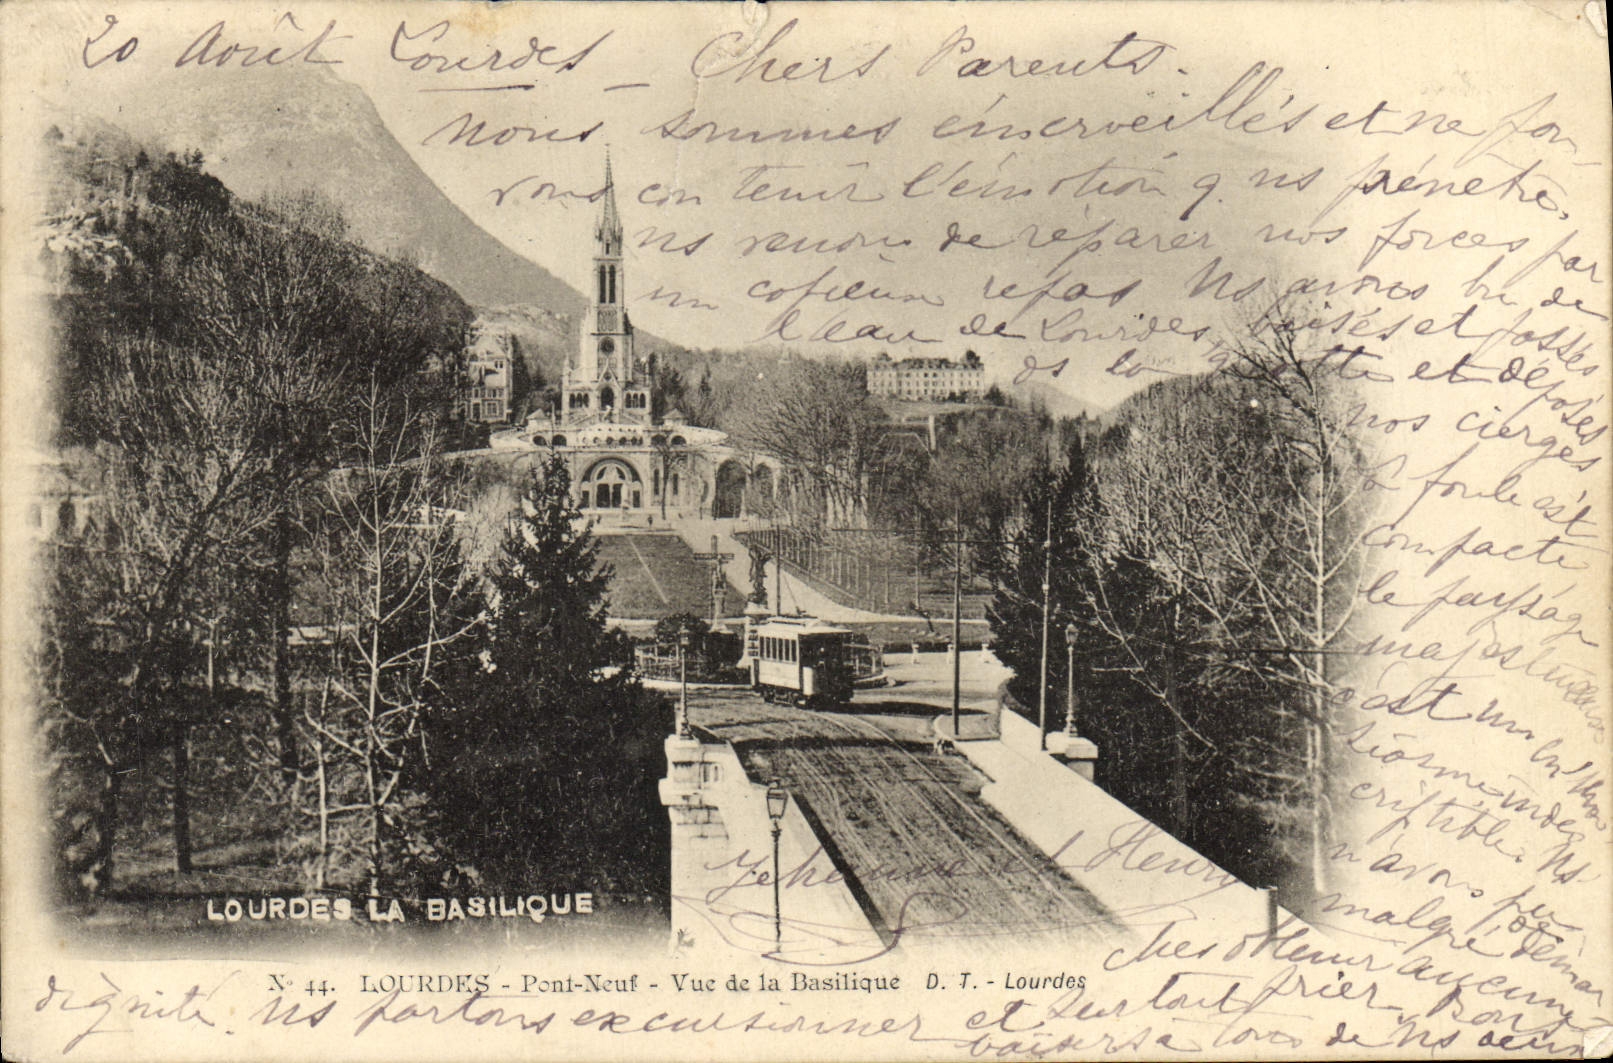 20 Août Lourdes – Chers Parents.
nous sommes émerveillés et ne pou-
vons con tenir l'émotion q. ns pénètre,
ns venons de réparer nos forces par
un copieux repas Ns avons bu de
l'eau de Lourdes, baisés et passés
ds la grotte et déposés
nos cierges
la foule est
compacte
le paysage
majestueux
c'est un
indes
criptible. Ns
n'avons pu
malgré démar
ches obtenir aucune
dignité. Ns partons excursionner et surtout prier. Bons
baisers à tous de Ns deux
Jehanne et Henry
LOURDES LA BASILIQUE
No 44. LOURDES - Pont-Neuf - Vue de la Basilique D. T. - Lourdes